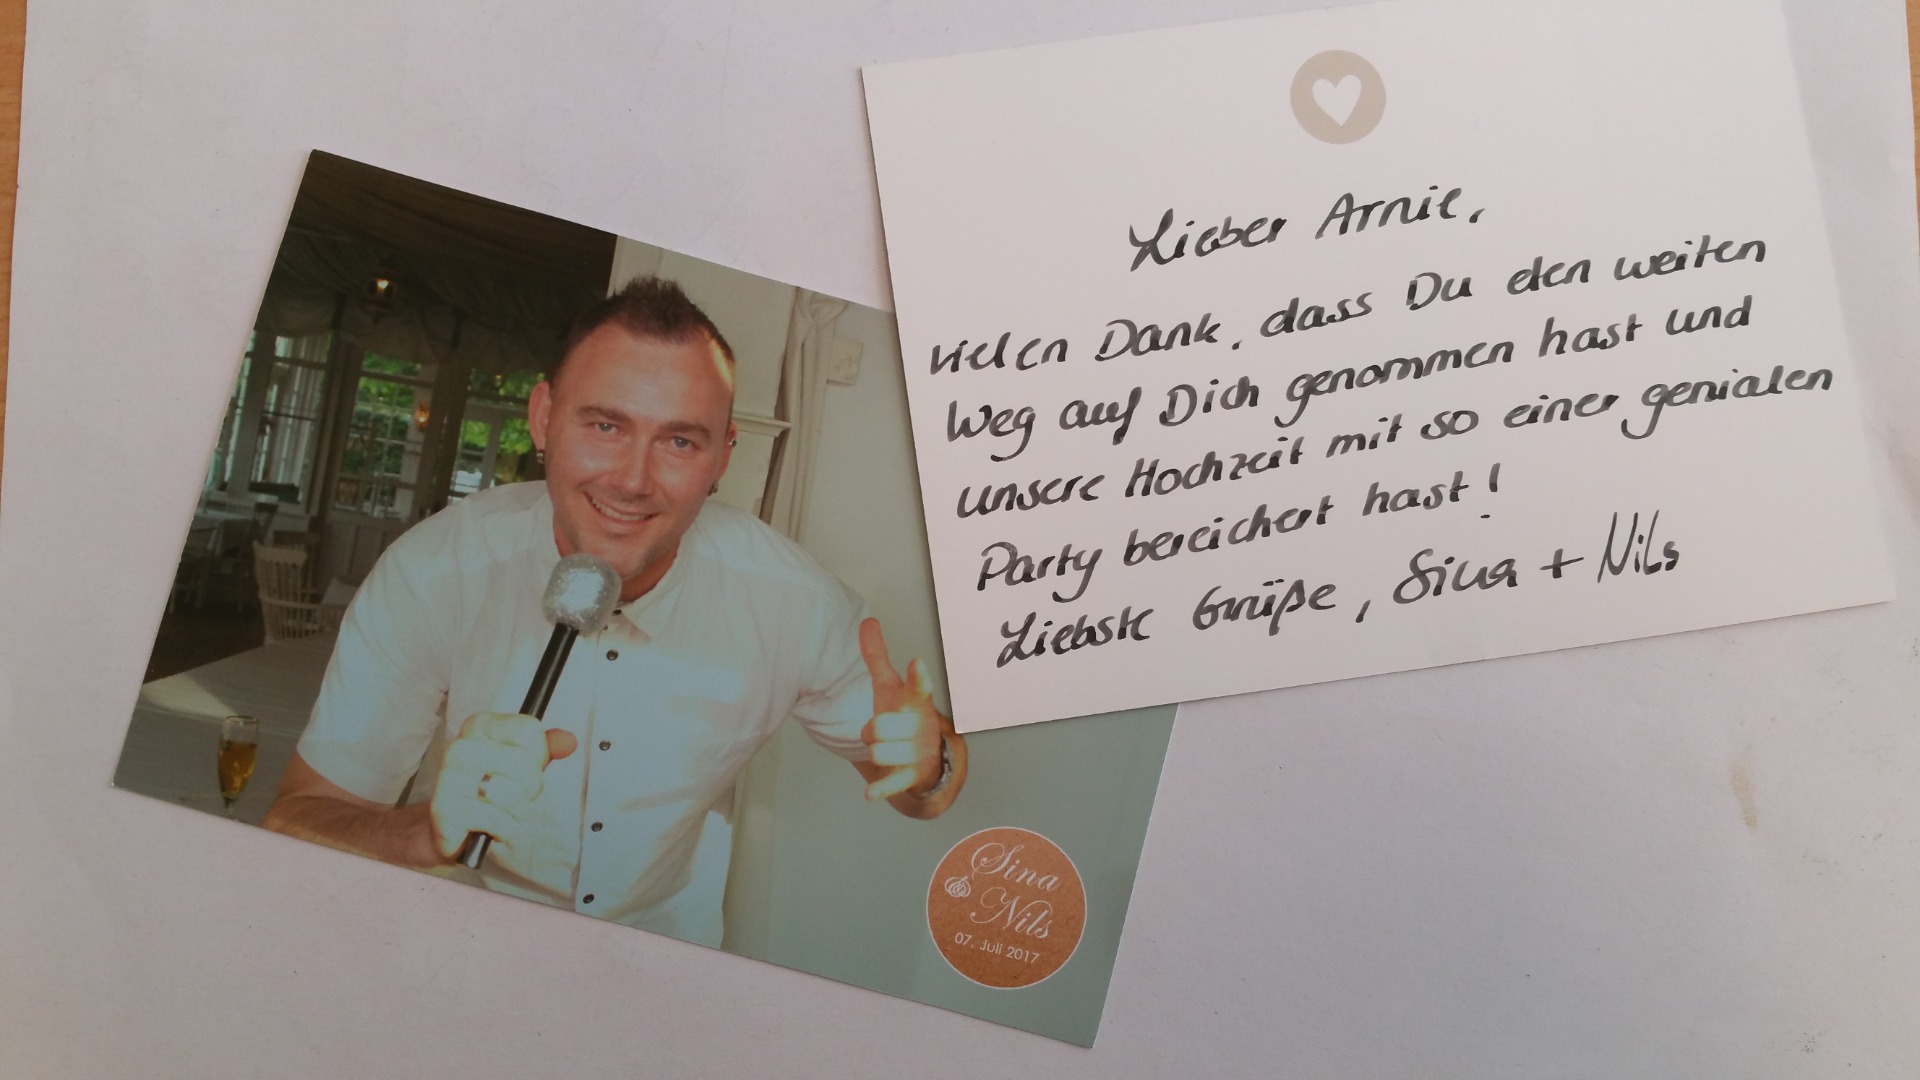 Lieber Arnie,
vielen Dank, dass Du den weiten
Weg auf Dich genommen hast und
unsere Hochzeit mit so einer genialen
Party bereichert hast!
Liebste Grüße, Sina + Nils
Sina
& Nils
07. Juli 2017